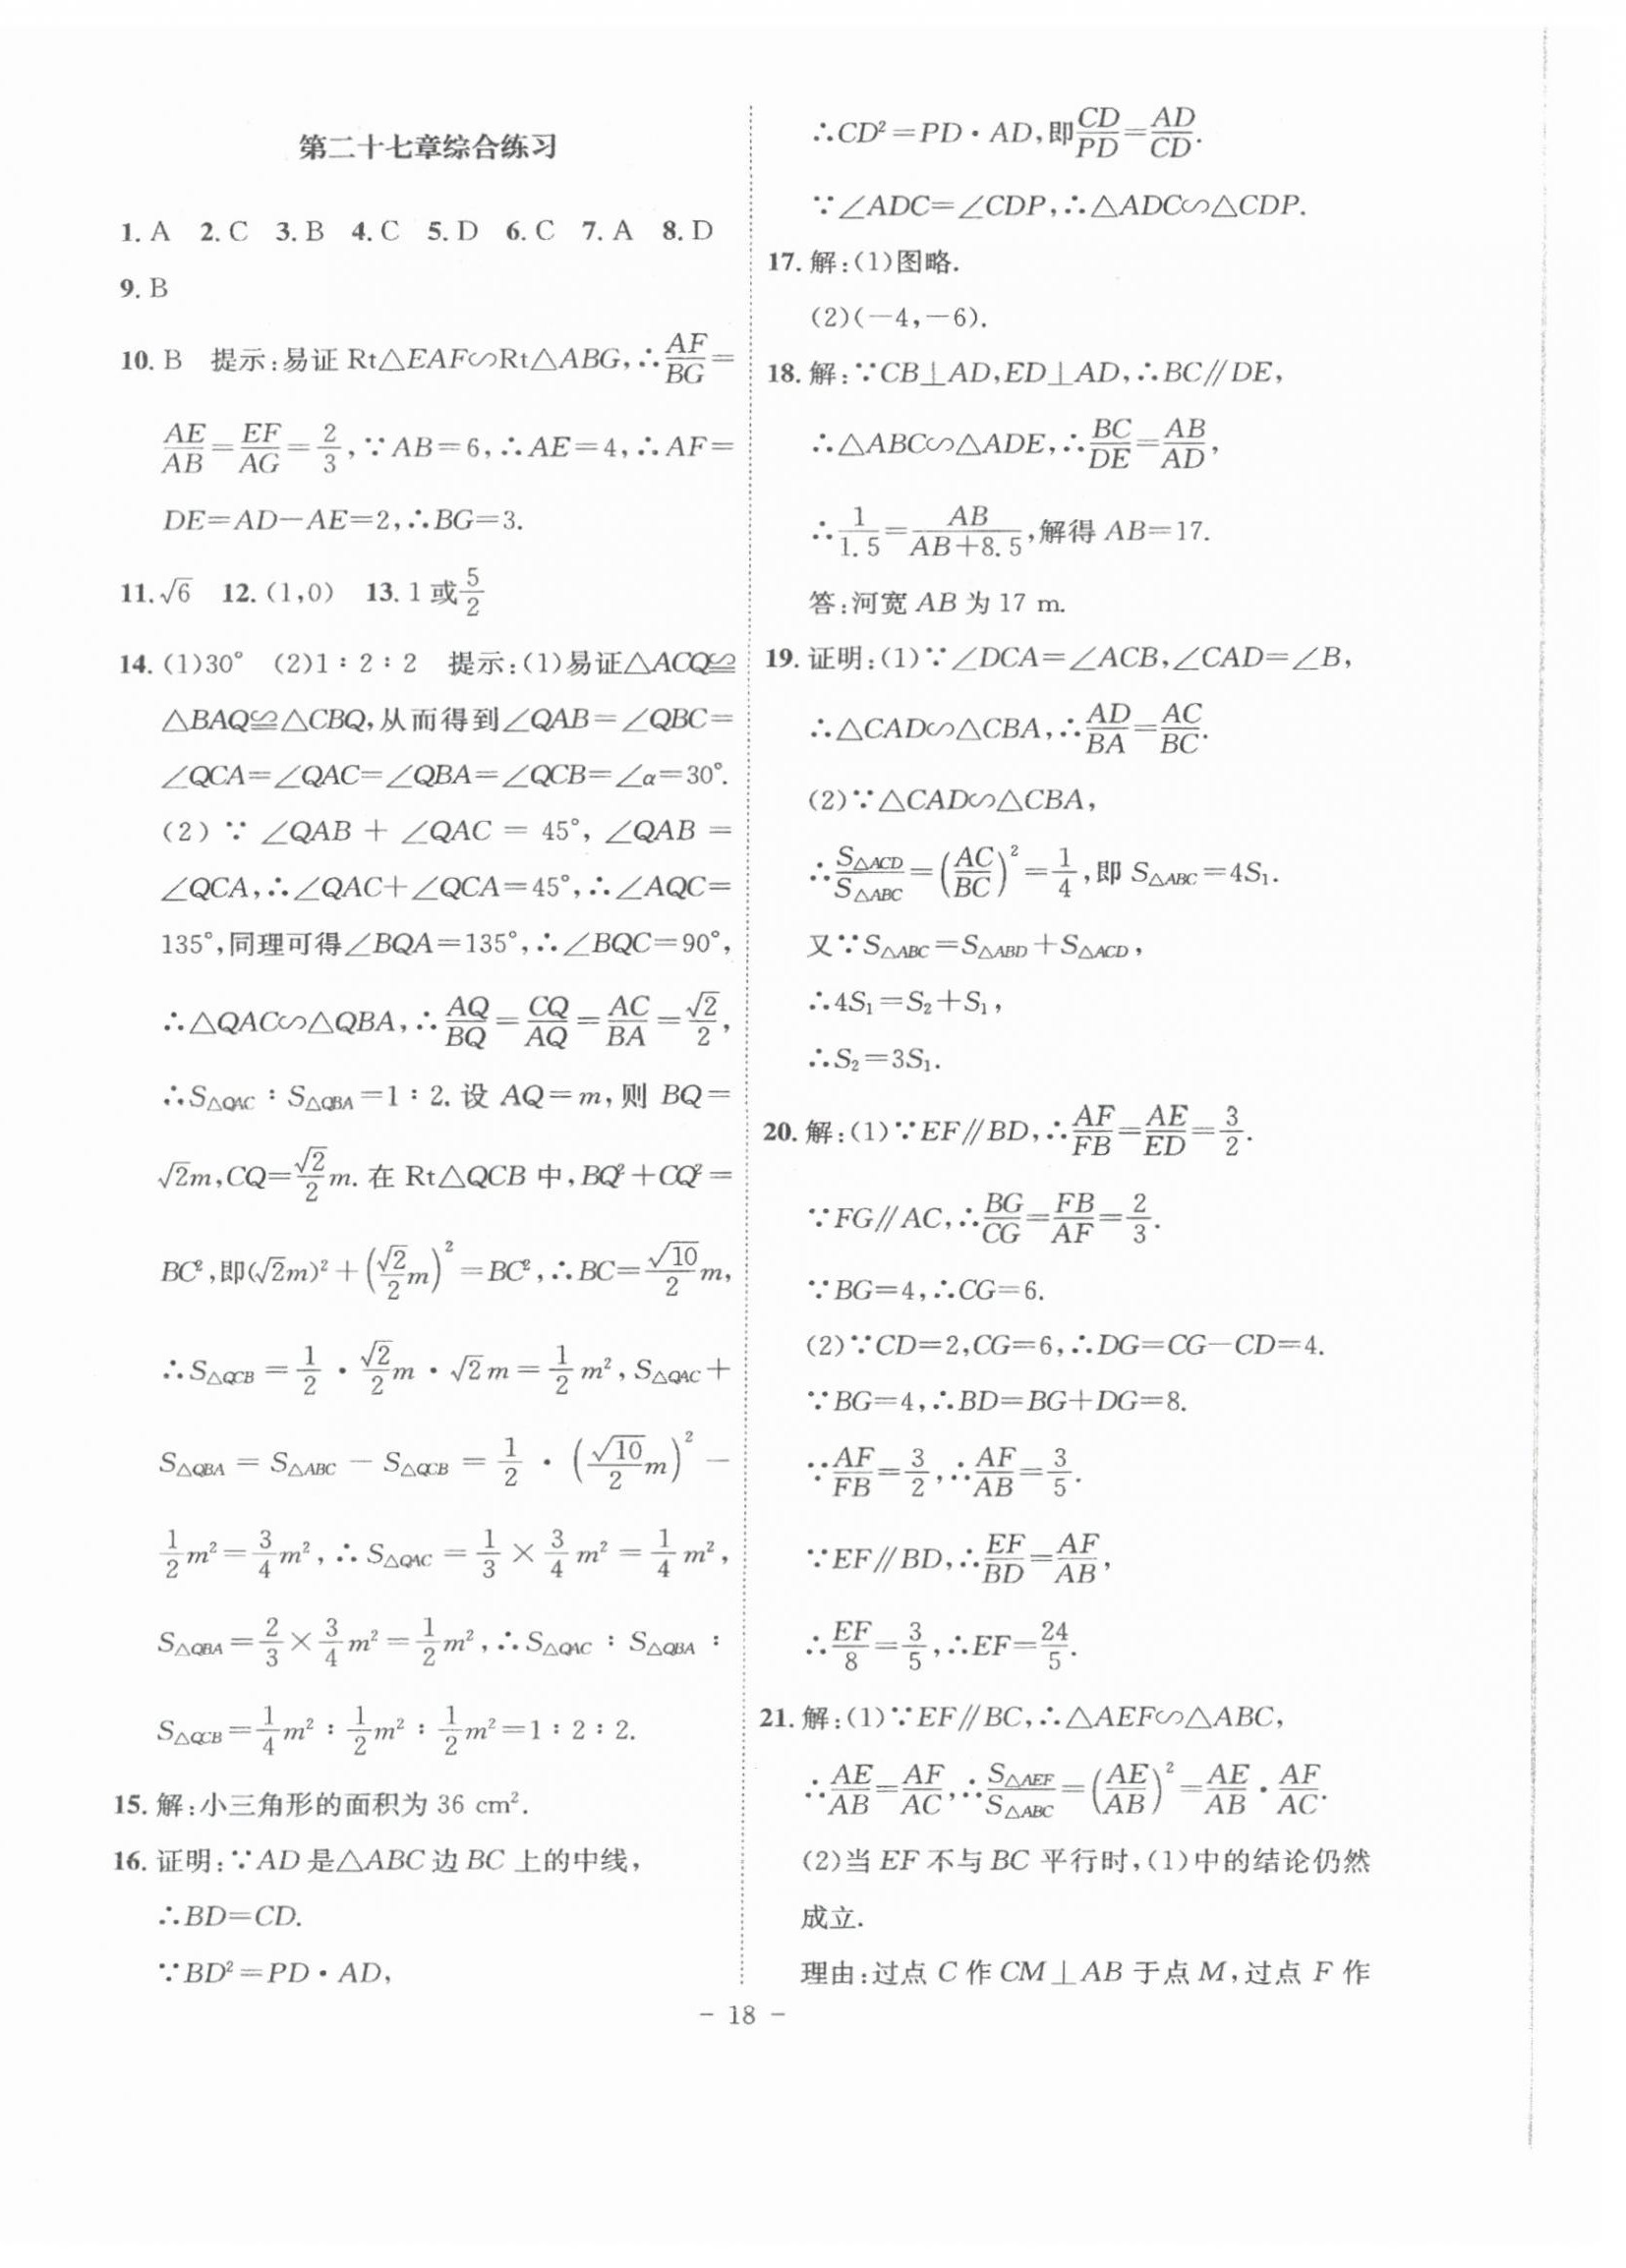 第二十七章综合练习
1. A 2. C 3. B 4. C 5. D 6. C 7. A 8. D
9. B
10. B 提示:易证 Rt△EAF∽Rt△ABG,∴AF/BG=
AE/AB=EF/AG=2/3,∵AB=6,∴AE=4,∴AF=
DE=AD-AE=2,∴BG=3.
11. √6 12. (1,0) 13. 1 或 5/2
14. (1)30° (2)1∶2∶2 提示:(1)易证△ACQ≌
△BAQ≌△CBQ,从而得到∠QAB=∠QBC=
∠QCA=∠QAC=∠QBA=∠QCB=∠α=30°.
(2)∵∠QAB+∠QAC=45°,∠QAB=
∠QCA,∴∠QAC+∠QCA=45°,∴∠AQC=
135°,同理可得∠BQA=135°,∴∠BQC=90°,
∴△QAC∽△QBA,∴AQ/BQ=CQ/AQ=AC/BA=√2/2,
∴S△QAC∶S△QBA=1∶2.设 AQ=m,则 BQ=
√2m,CQ=√2/2 m.在 Rt△QCB 中,BQ²+CQ²=
BC²,即(√2m)²+(√2/2 m)²=BC²,∴BC=√10/2 m,
∴S△QCB=1/2·√2/2 m·√2m=1/2 m²,S△QAC+
S△QBA=S△ABC-S△QCB=1/2·(√10/2 m)²-
1/2 m²=3/4 m²,∴S△QAC=1/3×3/4 m²=1/4 m²,
S△QBA=2/3×3/4 m²=1/2 m²,∴S△QAC∶S△QBA∶
S△QCB=1/4 m²∶1/2 m²∶1/2 m²=1∶2∶2.
15. 解:小三角形的面积为 36 cm².
16. 证明:∵AD 是△ABC 边 BC 上的中线,
∴BD=CD.
∵BD²=PD·AD,
∴CD²=PD·AD,即 CD/PD=AD/CD.
∵∠ADC=∠CDP,∴△ADC∽△CDP.
17. 解:(1)图略.
(2)(-4,-6).
18. 解:∵CB⊥AD,ED⊥AD,∴BC∥DE,
∴△ABC∽△ADE,∴BC/DE=AB/AD,
∴1/1.5=AB/(AB+8.5),解得 AB=17.
答:河宽 AB 为 17 m.
19. 证明:(1)∵∠DCA=∠ACB,∠CAD=∠B,
∴△CAD∽△CBA,∴AD/BA=AC/BC.
(2)∵△CAD∽△CBA,
∴S△ACD/S△ABC=(AC/BC)²=1/4,即 S△ABC=4S₁.
又∵S△ABC=S△ABD+S△ACD,
∴4S₁=S₂+S₁,
∴S₂=3S₁.
20. 解:(1)∵EF∥BD,∴AF/FB=AE/ED=3/2.
∵FG∥AC,∴BG/CG=FB/AF=2/3.
∵BG=4,∴CG=6.
(2)∵CD=2,CG=6,∴DG=CG-CD=4.
∵BG=4,∴BD=BG+DG=8.
∵AF/FB=3/2,∴AF/AB=3/5.
∵EF∥BD,∴EF/BD=AF/AB,
∴EF/8=3/5,∴EF=24/5.
21. 解:(1)∵EF∥BC,∴△AEF∽△ABC,
∴AE/AB=AF/AC,∴S△AEF/S△ABC=(AE/AB)²=AE/AB·AF/AC.
(2)当 EF 不与 BC 平行时,(1)中的结论仍然
成立.
理由:过点 C 作 CM⊥AB 于点 M,过点 F 作
- 18 -